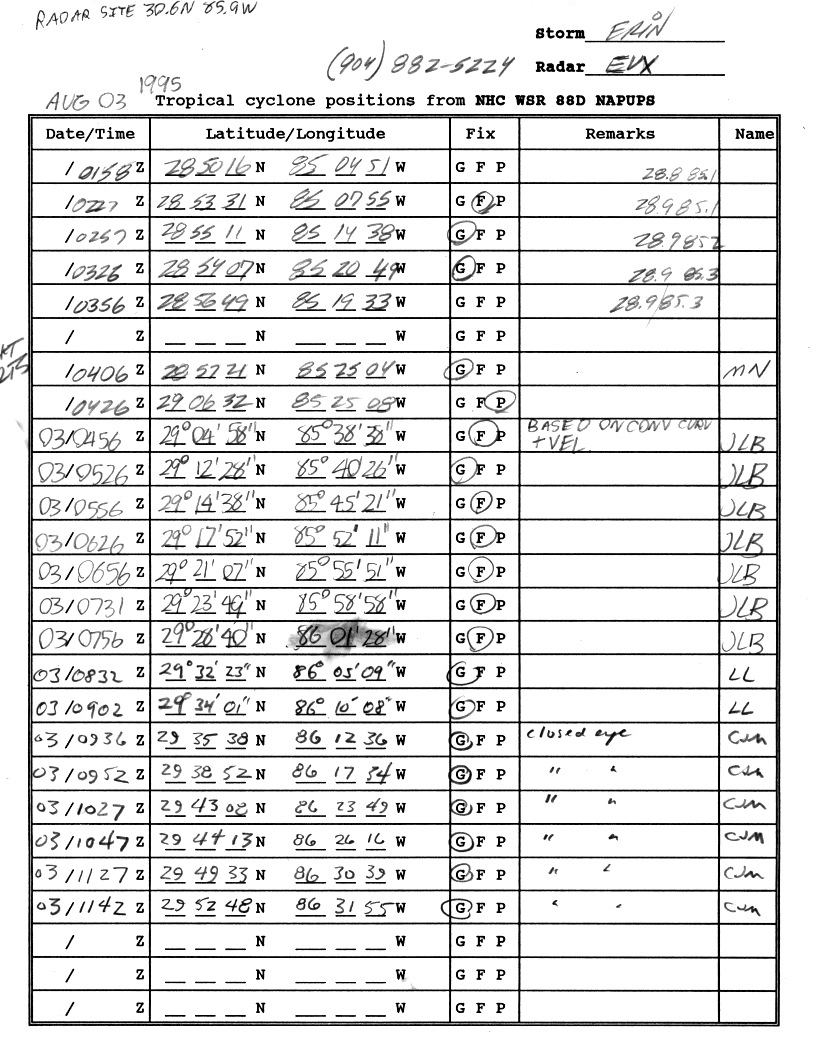 RADAR SITE 30.6N 85.9W
Storm ERIN
(904) 882-5224 Radar EVX
AUG 03 1995 Tropical cyclone positions from NHC WSR 88D NAPUPS
Date/Time Latitude/Longitude Fix Remarks Name
/0158 Z 28 50 16 N 85 04 51 W G F P 28.8 85.1
/0227 Z 28 53 31 N 85 07 55 W G F P 28.9 85.1
/0257 Z 28 55 11 N 85 14 38 W G F P 28.9 85.2
/0326 Z 28 54 07 N 85 20 49 W G F P 28.9 85.3
/0356 Z 28 56 49 N 85 19 33 W G F P 28.9 85.3
/ Z N W G F P
/0406 Z 28 52 21 N 85 25 04 W G F P MN
/0426 Z 29 06 32 N 85 25 08 W G F P
03/0456 Z 29° 04' 58" N 85° 38' 38" W G F P BASED ON CONV CURV
+ VEL. JLB
03/0526 Z 29° 12' 28" N 85° 40' 26" W G F P JLB
03/0556 Z 29° 14' 38" N 85° 45' 21" W G F P JLB
03/0626 Z 29° 17' 52" N 85° 52' 11" W G F P JLB
03/0656 Z 29° 21' 07" N 85° 55' 51" W G F P JLB
03/0731 Z 29° 23' 49" N 85° 58' 58" W G F P JLB
03/0756 Z 29° 28' 40" N 86 01' 28" W G F P JLB
03/0832 Z 29° 32' 23" N 86° 05' 09" W G F P LL
03/0902 Z 29° 34' 01" N 86° 10' 08" W G F P LL
03/0936 Z 29 35 38 N 86 12 36 W G F P closed eye CJM
03/0952 Z 29 38 52 N 86 17 34 W G F P " " CJM
03/1027 Z 29 43 08 N 86 23 49 W G F P " " CJM
03/1047 Z 29 44 13 N 86 26 16 W G F P " " CJM
03/1127 Z 29 49 33 N 86 30 39 W G F P " " CJM
03/1142 Z 29 52 48 N 86 31 55 W G F P " " CJM
/ Z N W G F P
/ Z N W G F P
/ Z N W G F P